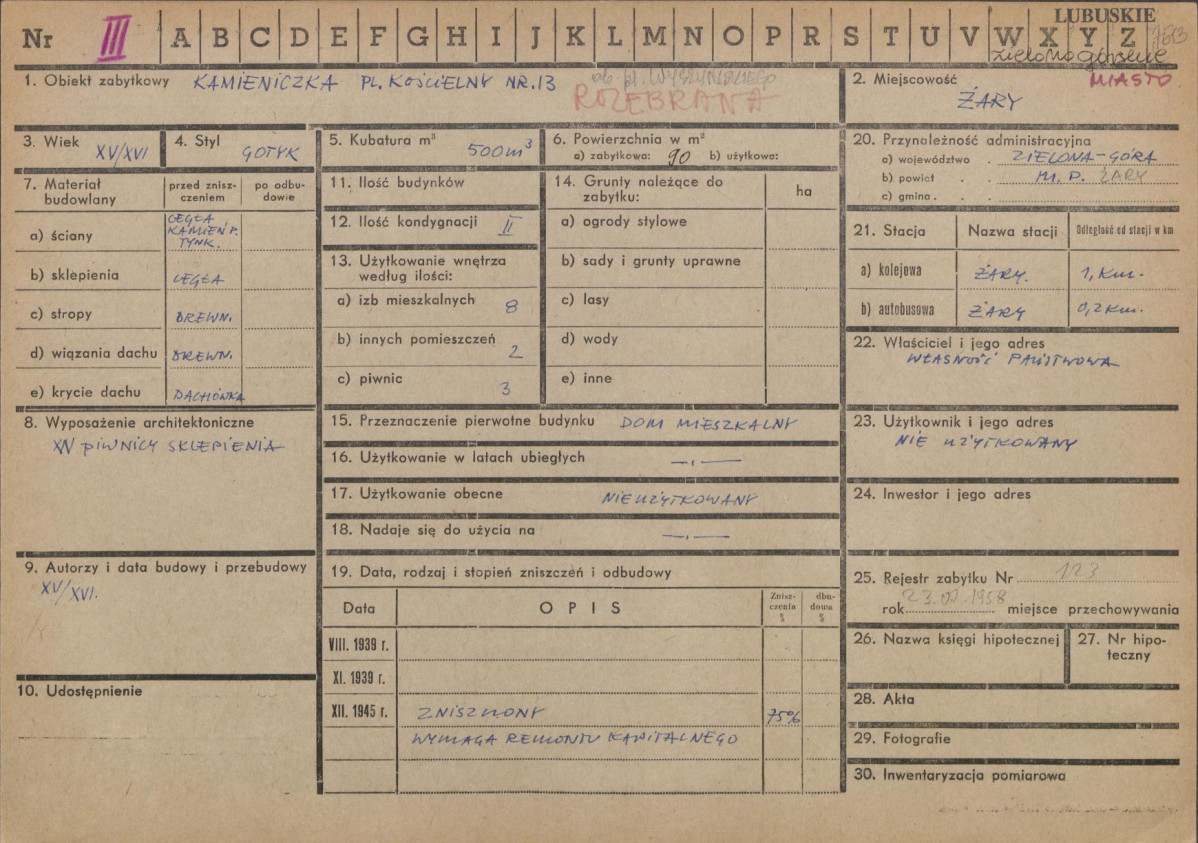 LUBUSKIE
Nr III A B C D E F G H I J K L M N O P R S T U V W X Y Z
zielonogórskie
1. Obiekt zabytkowy KAMIENICZKA PL. KOŚCIELNY NR. 13
ob. pl. WYSZYŃSKIEGO
ROZEBRANA
2. Miejscowość MIASTO
ŻARY
3. Wiek XV/XVI
4. Styl GOTYK
5. Kubatura m³ 500 m³
6. Powierzchnia w m²
a) zabytkowa: 90 b) użytkowa:
7. Materiał budowlany
przed znisz-
czeniem
po odbu-
dowie
a) ściany CEGŁA
KAMIEŃ P.
TYNK.
b) sklepienia CEGŁA
c) stropy DREWN.
d) wiązania dachu DREWN.
e) krycie dachu DACHÓWKA
8. Wyposażenie architektoniczne
W PIWNICY SKLEPIENIA
9. Autorzy i data budowy i przebudowy
XV/XVI.
10. Udostępnienie
11. Ilość budynków
12. Ilość kondygnacji II
13. Użytkowanie wnętrza
według ilości:
a) izb mieszkalnych 8
b) innych pomieszczeń 2
c) piwnic 3
14. Grunty należące do
zabytku:
ha
a) ogrody stylowe
b) sady i grunty uprawne
c) lasy
d) wody
e) inne
15. Przeznaczenie pierwotne budynku DOM MIESZKALNY
16. Użytkowanie w latach ubiegłych —„—
17. Użytkowanie obecne NIEUŻYTKOWANY
18. Nadaje się do użycia na —„—
19. Data, rodzaj i stopień zniszczeń i odbudowy
Data OPIS
Znisz-
czenia
%
dbu-
dowa
%
VIII. 1939 r.
XI. 1939 r.
XII. 1945 r. ZNISZCZONY 75%
WYMAGA REMONTU KAPITALNEGO
20. Przynależność administracyjna
a) województwo . ZIELONA-GÓRA
b) powiat . . M. P. ŻARY
c) gmina . . .
21. Stacja Nazwa stacji Odległość od stacji w km
a) kolejowa ŻARY. 1, Km.
b) autobusowa ŻARY 0,2 Km.
22. Właściciel i jego adres
WŁASNOŚĆ PAŃSTWOWA
23. Użytkownik i jego adres
NIE UŻYTKOWANY
24. Inwestor i jego adres
25. Rejestr zabytku Nr 123
rok 23.07.1958 miejsce przechowywania
26. Nazwa księgi hipotecznej
27. Nr hipo-
teczny
28. Akta
29. Fotografie
30. Inwentaryzacja pomiarowa